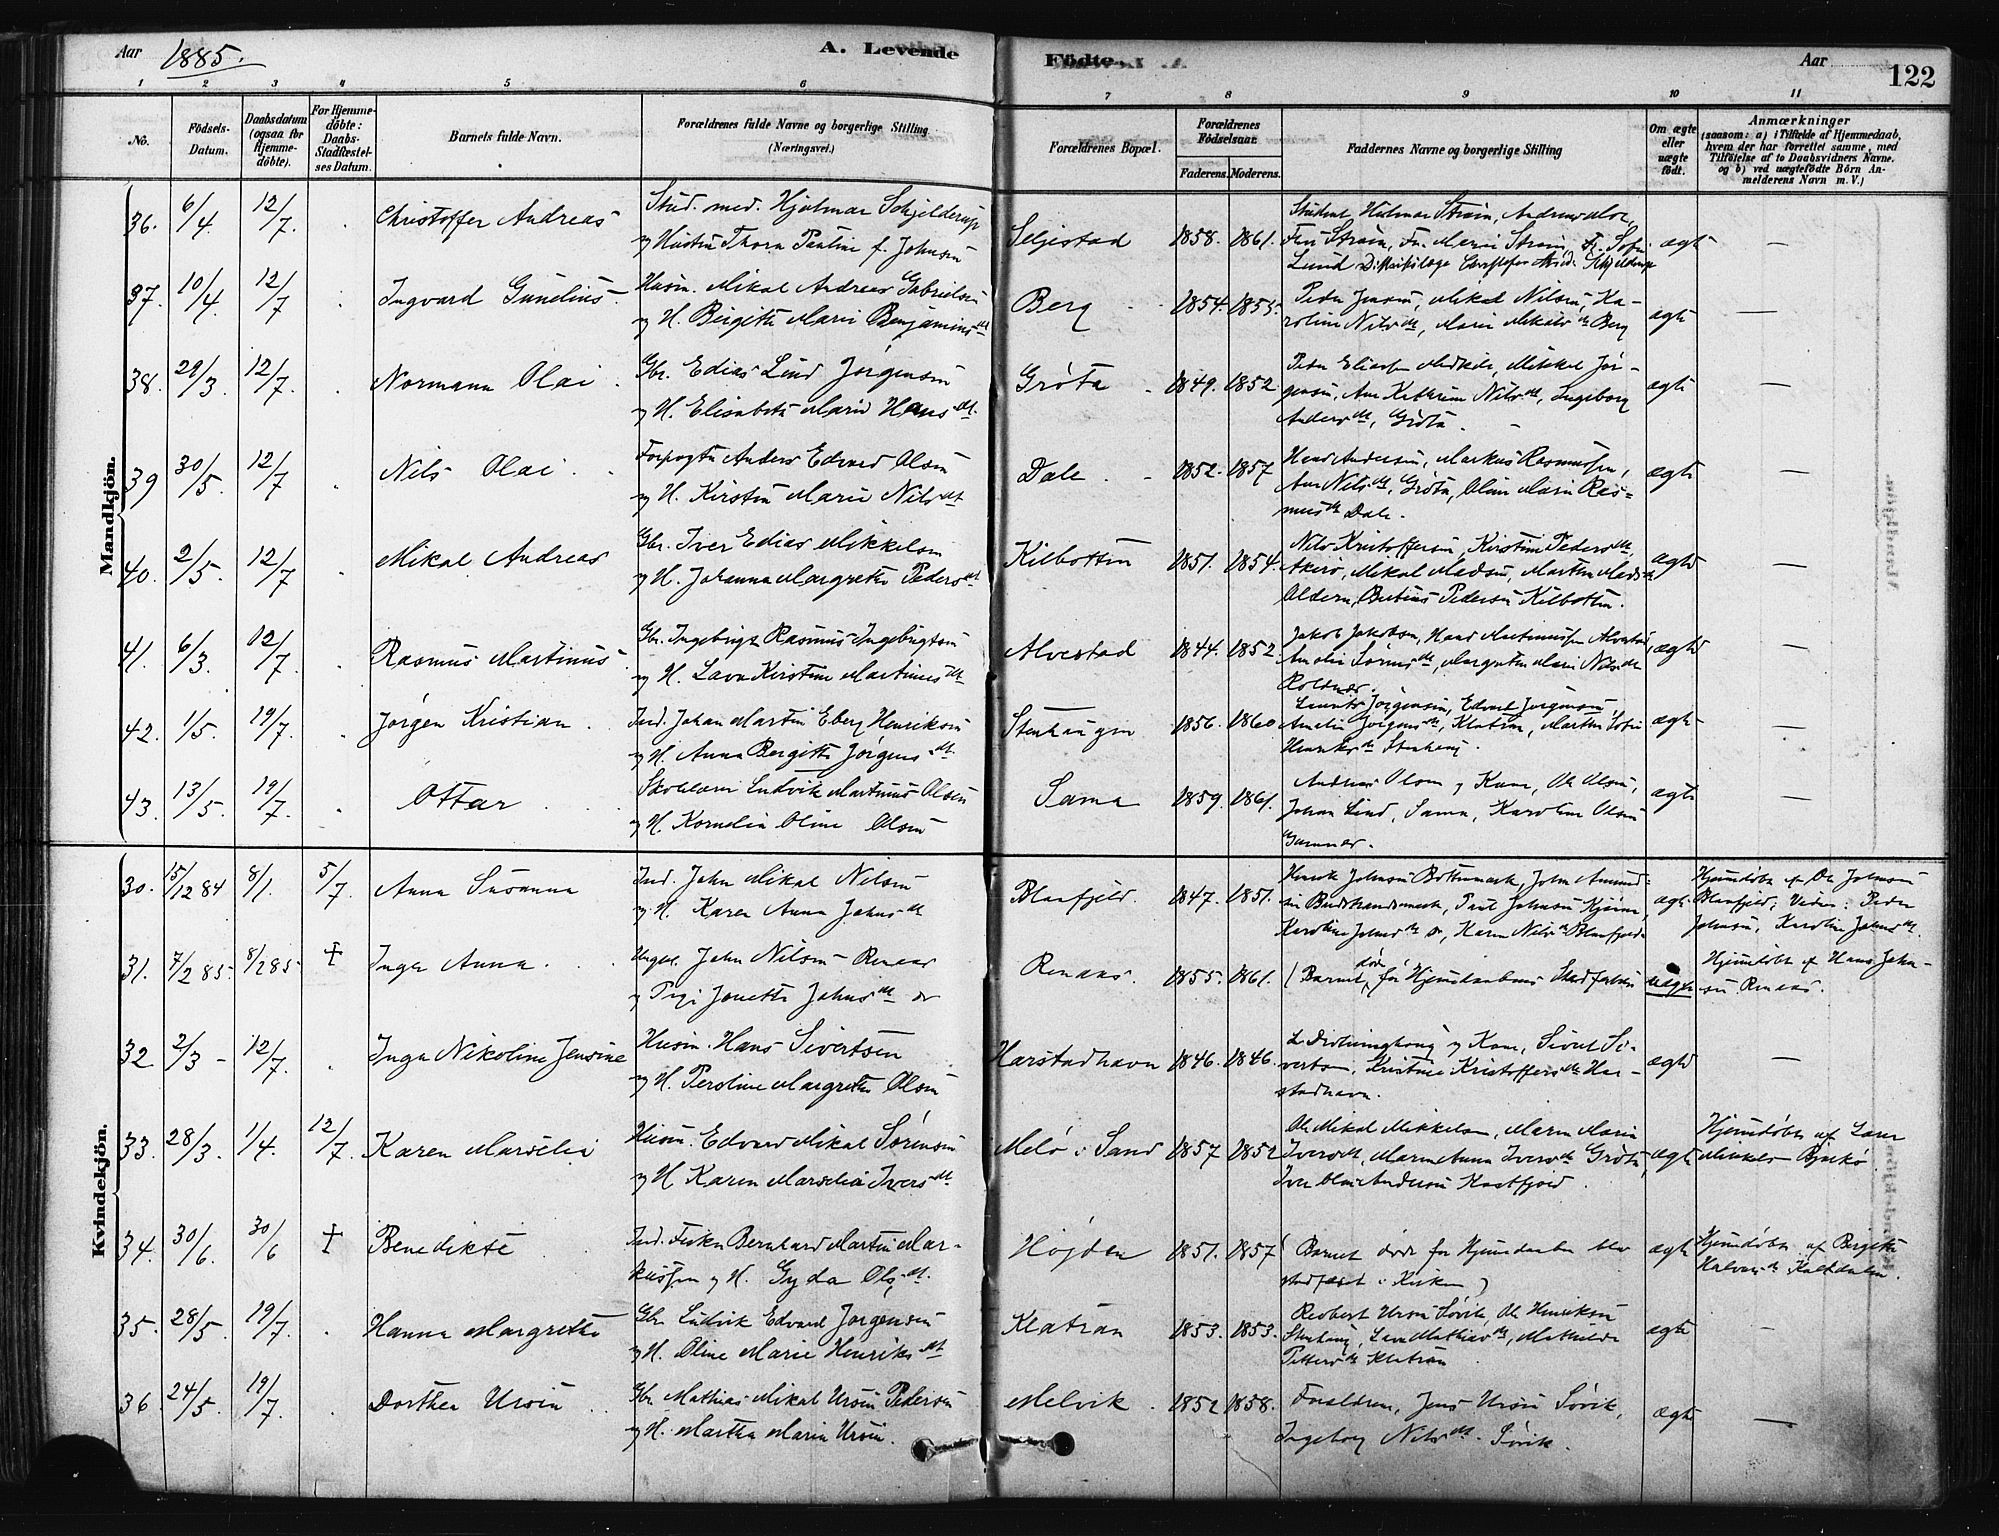 Aar 1885. A. Levende Födte. Aar 122
1 2 3 4 5 6 7 8 9 10 11
No. Födsels-Datum. Daabsdatum (ogsaa for Hjemme-döbte). For Hjemme-döbte: Daabs-Stadfæstel-ses Datum. Barnets fulde Navn. Forældrenes fulde Navne og borgerlige Stilling (Næringsvei.) Forældrenes Bopæl. Forældrenes Födselsaar. Faderens. Moderens. Faddernes Navne og borgerlige Stilling Om ægte eller uægte födt. Anmærkninger (saasom: a) i Tilfælde af Hjemmedaab, hvem der har forrettet samme, med Tilföielse af to Daabsvidners Navne. og b) ved uægtefödte Börn An-melderens Navn m. V.)
Mandkjön.
36. 6/4. 12/7. Christoffer Andreas Stud. med. Hjalmar Schjelderup
og Hustru Thora Pauline f. Johnsen Seljestad 1858. 1861. ægte —
37. 10/4. 12/7 Ingvard Gunelius Husm. Mikal Andreas Gabrielsen
og H. Bergitte Marie Benjamins dt Berg 1854. 1855. Peder Jensen, Mikal Nilsen, Ka-
roline Nils dt, Marie Mikals dt Berg ægte —
38. 29/3. 12/7. Normann Olai Gbr. Edias Lind Jørgensen
og H. Elisabeth Marie Hans dt. Grøta 1849. 1852 Mikkal Jør-
gensen, Ane Kathrine Nils dt, Ingeborg
Anders dt, Grøta. ægte —
39 30/5. 12/7 Nils Olai Forpagter Anders Edvard Olsen
og H. Kirsten Marie Nils dt Dale 1852. 1857 Hans Andersen, Markus Rasmussen,
Ane Nils dt, Grøta, Oline Marie Ras-
mus dt Dale. ægte —
40. 2/5. 12/7 Mikal Andreas Gbr. Iver Edias Mikkelsen
og H. Johanna Margrethe Peders dt Kilbotten 1851. 1854. Nils Kristoffersen, Kirstine Peders dt,
Akerø, Mikal Madsen, Marthe Mads dt
Aldern, Pedersen Kilbotten. ægte —
41. 6/3. 12/7. Rasmus Martinus Gbr. Ingebrigt Rasmus Ingebrigtsen
og H. Lava Kirstine Martinus dt Alvestad 1844. 1852. Jakob Jakobsen, Hans Martinussen Alvestad,
Amalie Sørens dt, Margrethe Marie Nils dt ægte —
42. 1/5. 19/7. Jørgen Kristian Ind. Johan Martin Eberg Henriksen
og H. Anna Bergitte Jørgens dt Stenhaugen 1856. 1860 Laurits Jørgensen, Edvard Jørgensen,
Amalie Jørgens dt, Klatran, Marthe Sofie
Henriks dt Stenhaug. ægte —
43. 13/5. 19/7. Ottar Skolelærer Ludvik Martinus Olsen
og H. Kornelia Oline Olsen Sama 1859. 1861. Andreas Olsen og Kone, Ole Olsen,
Johan Lind, Sama, Karoline Olsen ægte —
Kvindekjön.
30. 15/12 84 8/1. 5/7 Anna Susanna Ind. John Mikal Nilsen
og H. Karen Anna Johns dt Blaafjeld. 1847. 1851. Henrik Johnsen Bottenmark, John Amund-
sen Karoline Johns dt Karen Nils dt Blaafjeld ægte Hjemdøbt af Ole Johnsen
Blaafjeld; Vidner: Peder
Johnsen, Karoline Johns dt.
31. 7/2 85. 8/2 85. + Inga Anna. Ungk. John Nilsen Renaas
og Pige Jonetta Johns dt Renaas 1855. 1861. (Barnet døde før Hjemmedaabens Stadfæstelse uægte Hjemdøbt af Hans John-
sen Renaas.
32 2/3 - 12/7. Inga Nikoline Jensine Husm. Hans Sivertsen
og H. Peroline Margrethe Olsen Harstadhavn 1846. 1846. og Kone, Sivert Si-
vertsen, Kristine Kristoffers dt Har-
stadhavn. ægte —
33. 28/3. 1/4. 12/7. Karen Marselia Husm. Edvard Mikal Sørensen
og H. Karen Marselia Ivers dt Melø i Sand 1857 1852 Ole Mikal Mikkelsen, Maren Marie
Ivers dt, Maren Anna Ivers dt Grøta,
Iver Olai Andersen Kastfjord. ægte Hjemdøbt af Lærer
Mikkels Bjarkø
34. 30/6. 30/6 + Benedikte Ind. Fisker Bernhard Martin Mar-
kussen og H. Gyda Ols dt. Højden 1851. 1857 (Barnet døde før Hjemdaaben blev
stadfæstet i Kirken) ægte Hjemdøbt af Bergithe
Halvars dt Kaltdalen.
35. 28/5. 19/7. Hanna Margrethe Gbr. Ludvik Edvard Jørgensen
og H. Oline Marie Henriks dt Klatran 1853. 1853. Redbert Ursin Sørvik, Ole Henriksen
Stenhaug, Lava Mathias dt, Mathilde
Petters dt Klatran ægte —
36. 24/5. 19/7. Dorthea Ursin Gbr. Mathias Mikal Ursin Pedersen
og H. Martha Maria Ursin. Melvik 1852 1858. Forældrene, Jens Ursin Sørvik,
Ingeborg Nils dt. Sørvik. ægte —